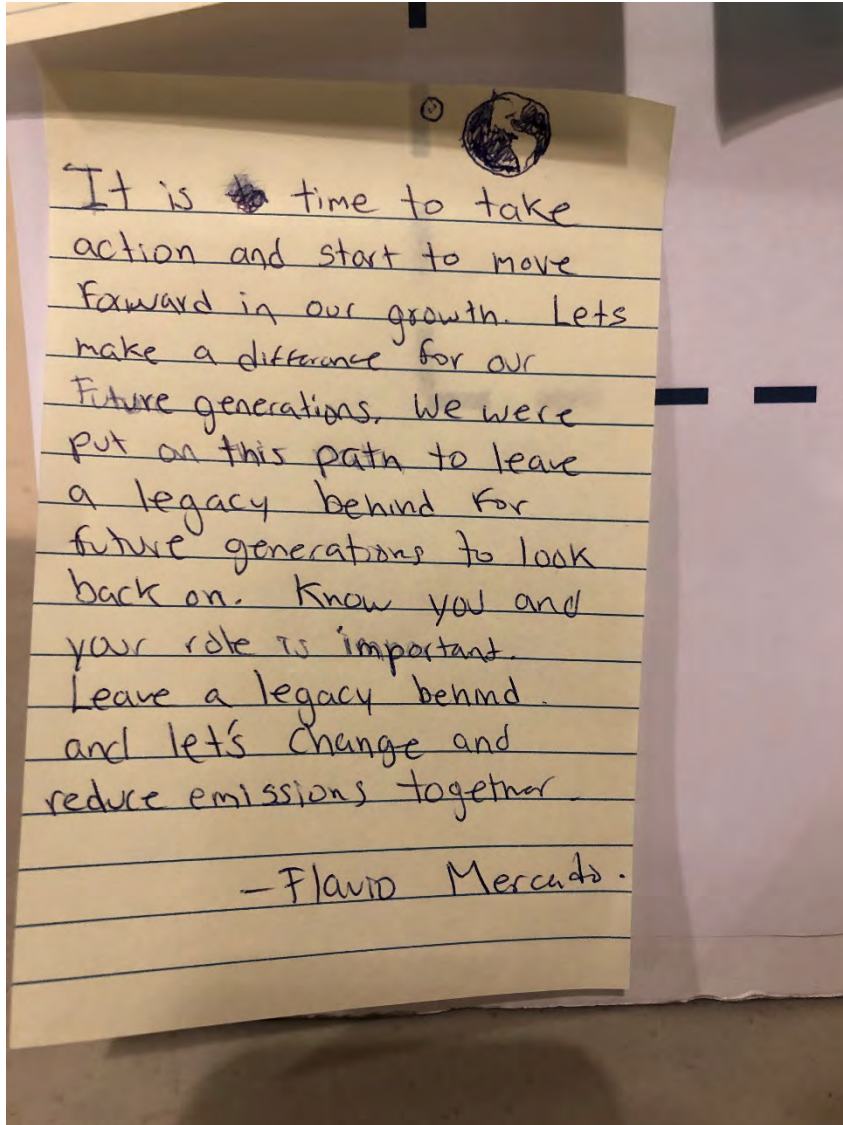 It is time to take
action and start to move
forward in our growth. Lets
make a difference for our
Future generations. We were
put on this path to leave
a legacy behind for
future generations to look
back on. Know you and
your role is important.
Leave a legacy behind.
and let's change and
reduce emissions together.
-Flavio Mercado.